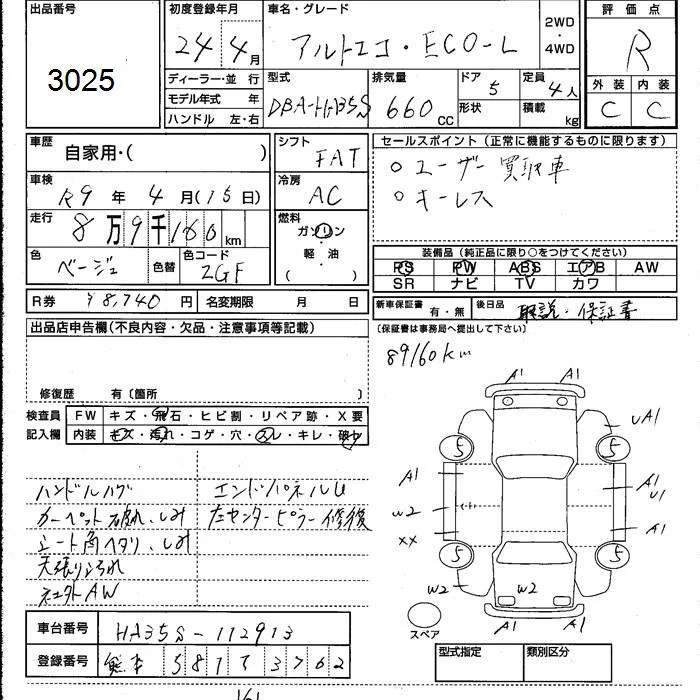 出品番号
3025
初度登録年月
24年4月
車名・グレード
アルトエコ・ECO-L
2WD・4WD
評価点
R
外装 内装
C C
ディーラー・並行
モデル年式 年
ハンドル 左・右
型式
DBA-HA35S
排気量
660cc
ドア
5
形状
定員
4人
積載
kg
車歴
自家用・( )
シフト
FAT
車検
R9年4月(15日)
冷房
AC
走行
8万9千160km
燃料
ガソリン
・
軽油
( )
色
ベージュ
色替
色コード
ZGF
R券 ¥8,740円 名変期限 月 日
セールスポイント(正常に機能するものに限ります)
○ユーザー買取車
○キーレス
装備品(純正品に限り○をつけてください)
PS PW ABS エアB AW
SR ナビ TV カワ
新車保証書 有・無 後日品 取説・保証書
(保証書は事務局へ提出して下さい)
出品店申告欄(不良内容・欠品・注意事項等記載)
修復歴 有〔箇所 〕
89160km
検査員記入欄
FW キズ・飛石・ヒビ割・リペア跡・X要
内装 キズ・汚れ・コゲ・穴・スレ・キレ・破レ
ハンドルハゲ
カーペット破れ、しみ
シート角ヘタリ、しみ
天張りよごれ
社外AW
エンドパネルU
左センターピラー修復
A1 A1
UA1
5 5
A1 A1
U1
W2
XX A1
5 5
W2 W2 W2
A1 A1
スペア
車台番号 HA35S-112913
登録番号 熊本 581 す 3762
型式指定 類別区分